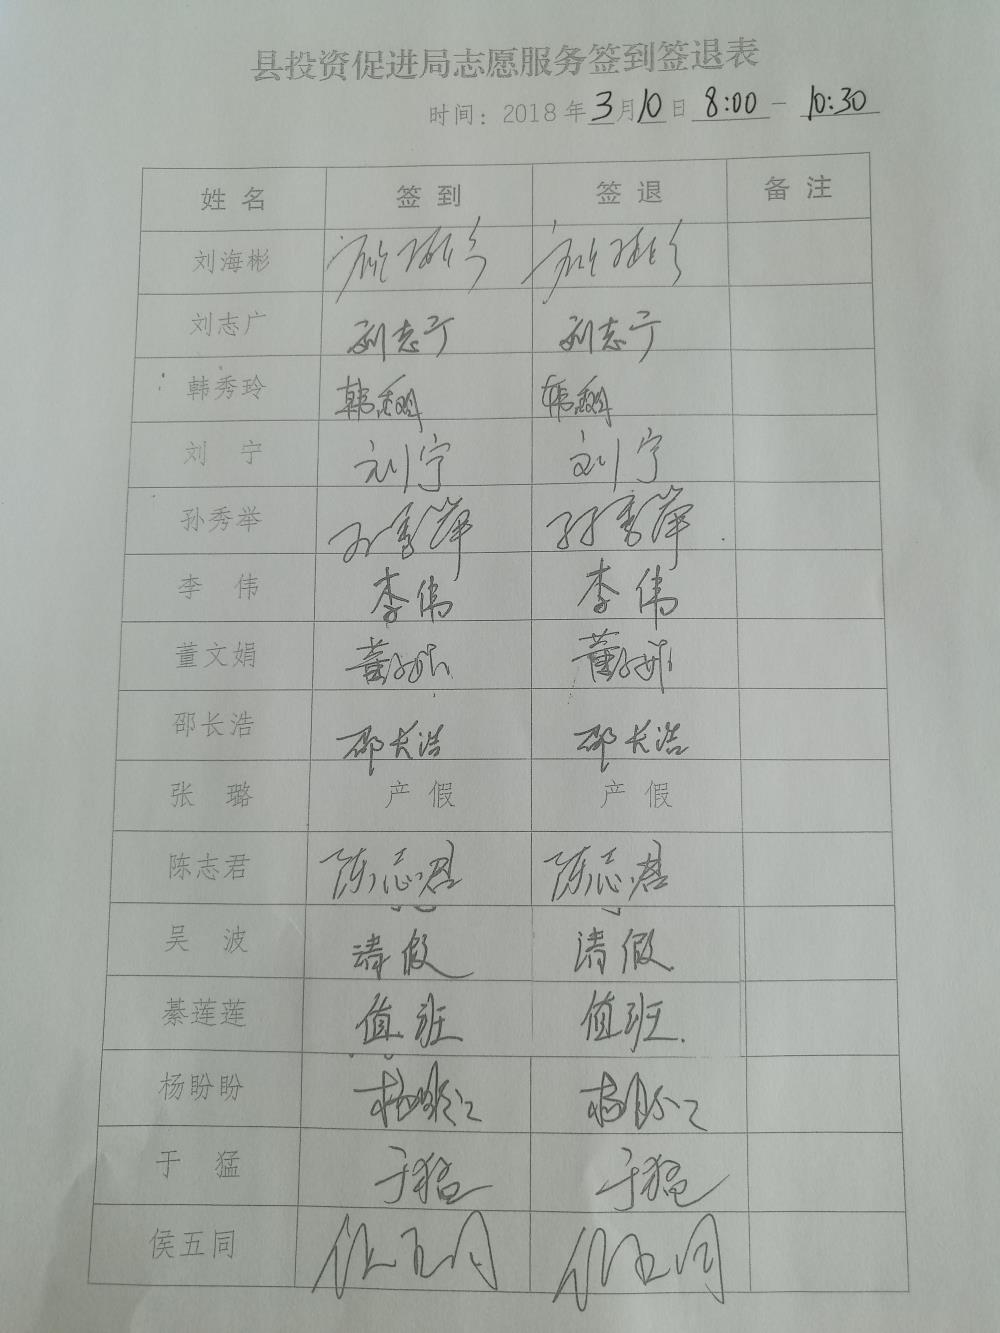 县投资促进局志愿服务签到签退表
时间：2018年3月10日 8:00 - 10:30
姓 名 签 到 签 退 备 注
刘海彬
刘志广 刘志广 刘志广
韩秀玲 韩秀玲 韩秀玲
刘 宁 刘宁 刘宁
孙秀举 孙秀举 孙秀举
李 伟 李伟 李伟
董文娟 董文娟 董文娟
邵长浩 邵长浩 邵长浩
张 璐 产 假 产 假
陈志君 陈志君 陈志君
吴 波 请假 请假
綦莲莲 值班 值班
杨盼盼 杨盼盼 杨盼盼
于 猛 于猛 于猛
侯五同 侯五同 侯五同